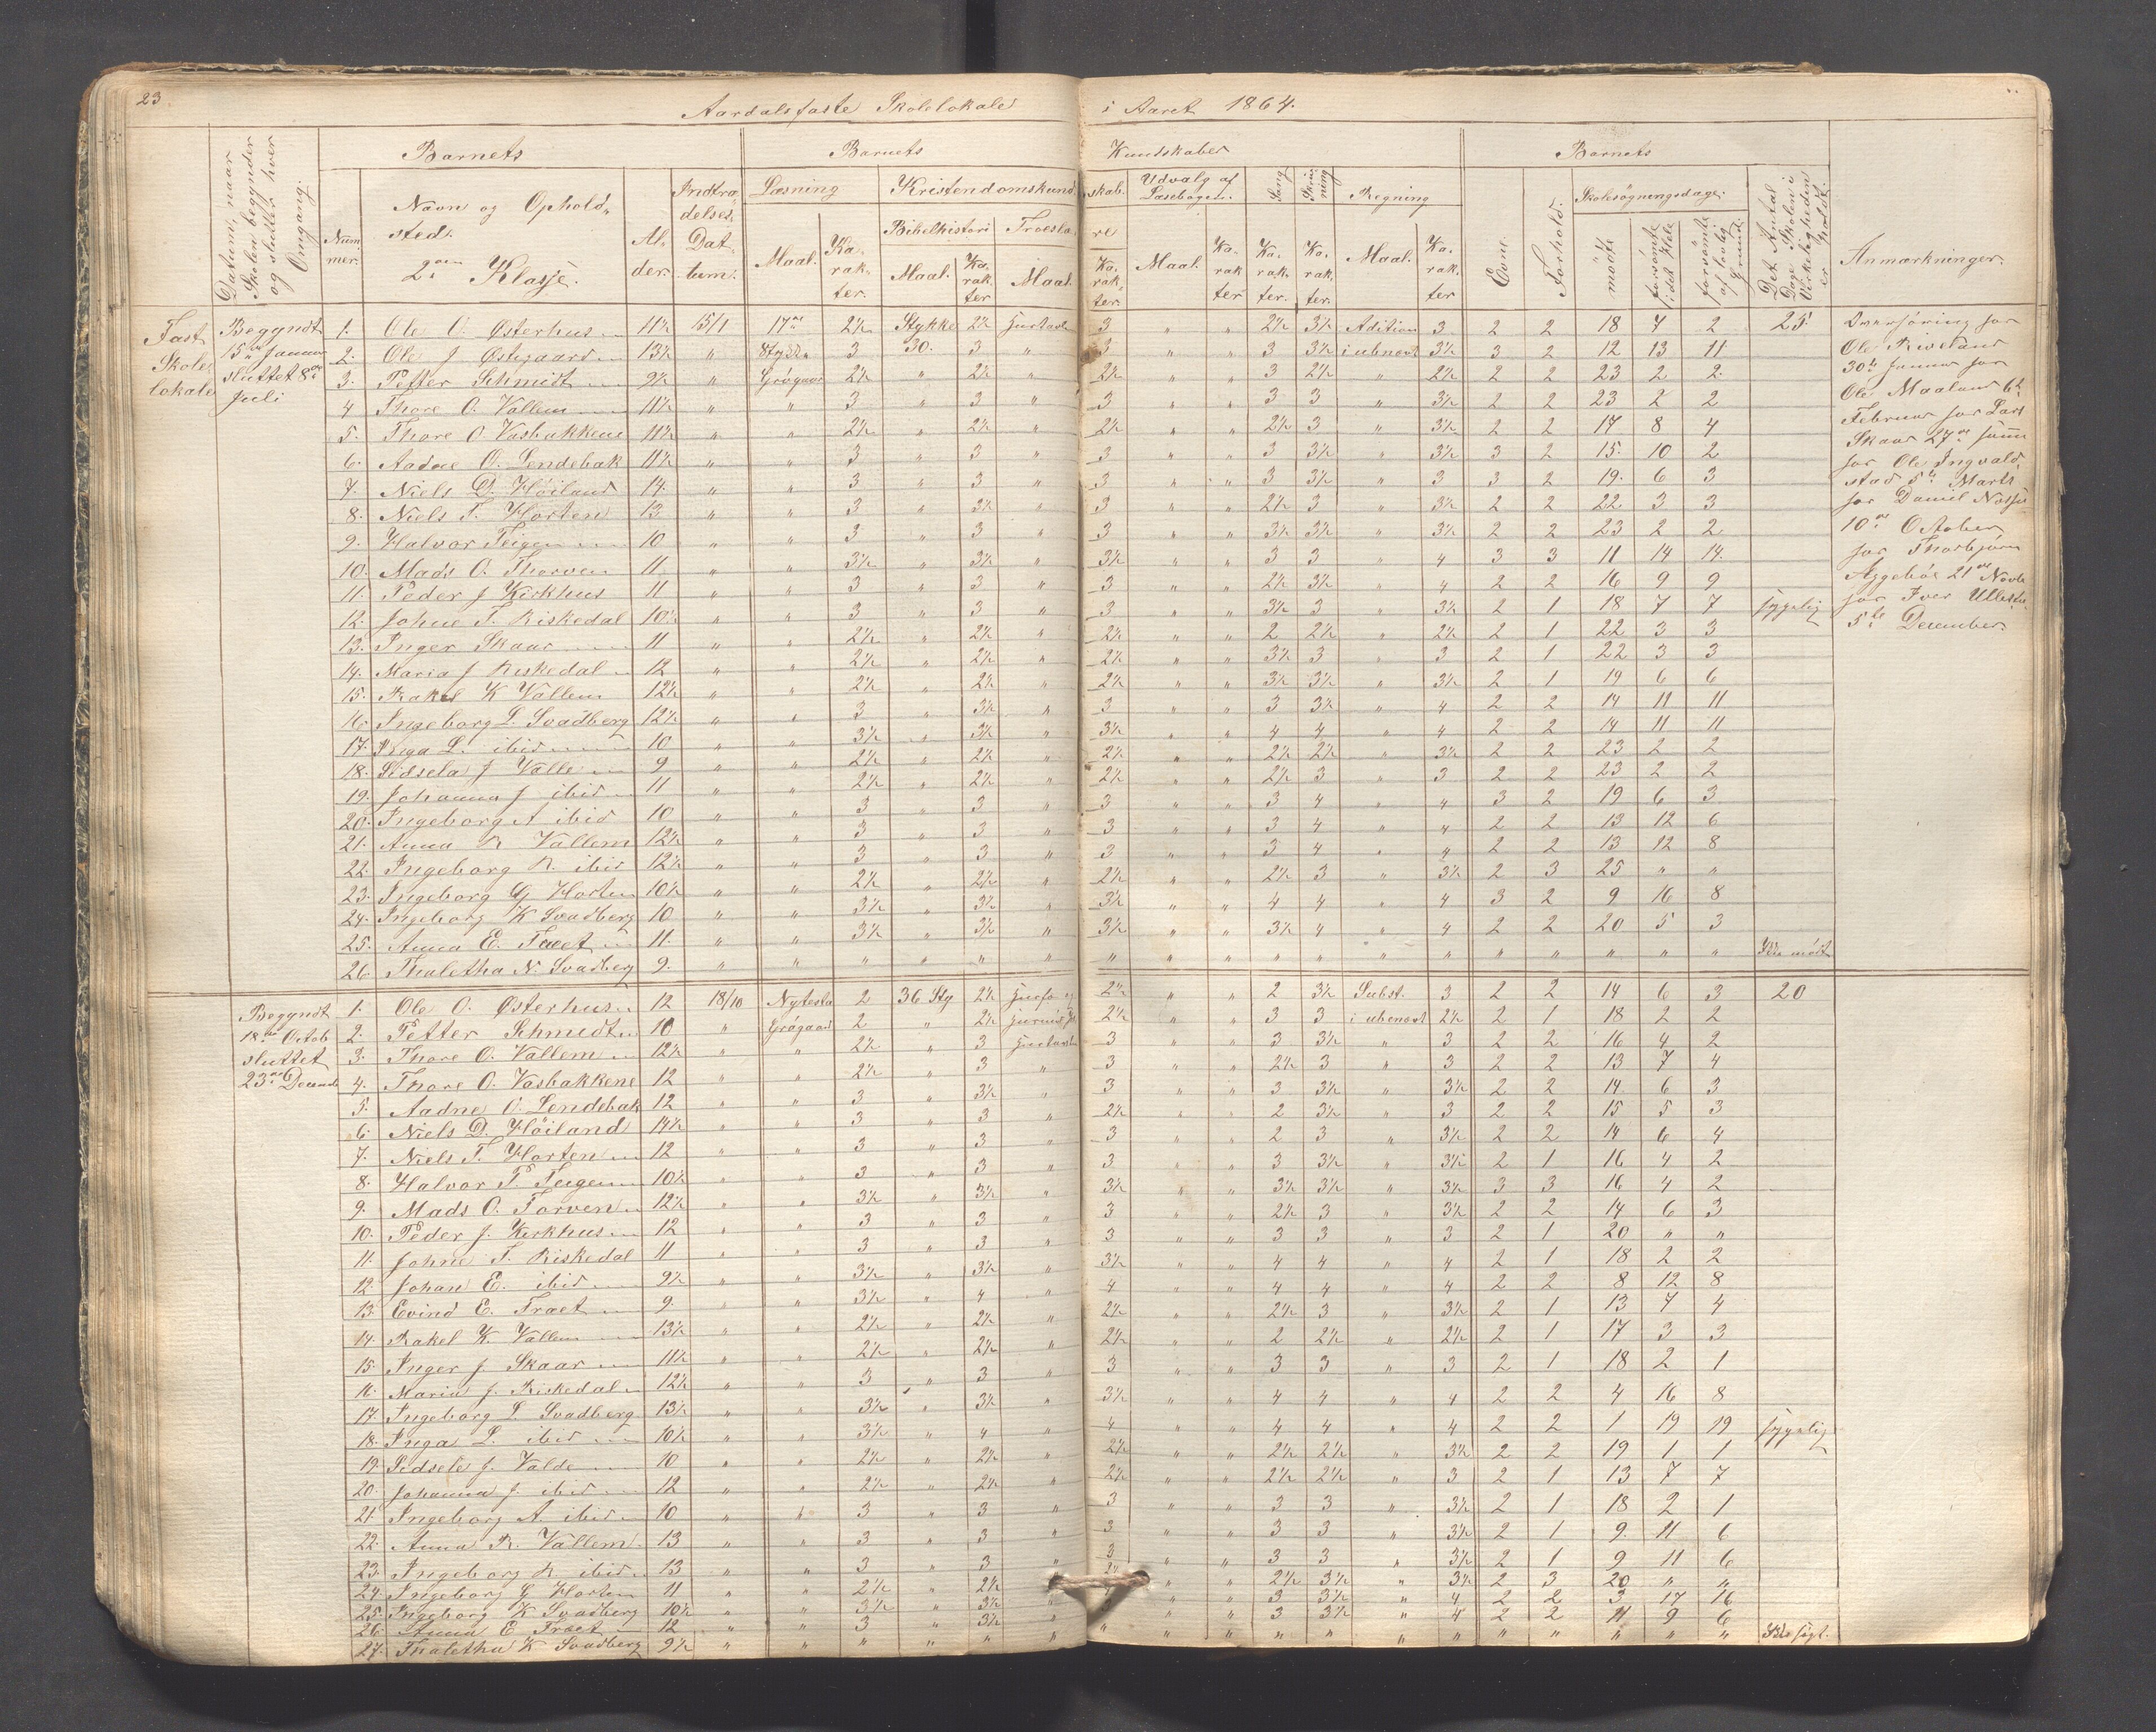 23.
Aardalsfaste Skolelokale i Aaret 1864.
Datum, naar Skolen begynder og slutter hver Omgang.
Barnets
Barnets
Kundskaber
Barnets
Nummer.
Navn og Opholdsted.
2den Klasse.
Alder.
Indtrædelses Dattum.
Læsning
Kristendomskundskab.
Bibelhistori
Troeslære
Maal.
Karakter.
Maal.
Karakter
Maal.
Karakter.
Udvalg af Læsebogen.
Maal.
Karakter
Sang
Karakter.
Skrivning
Karakter.
Regning
Maal.
Karakter
Evne.
Forhold.
Skolesögningsdage.
mödte
forsömte i det Hele
forsömte af lovlig Grund.
Det Antal Dage Skolen i Virkeligheden er holdt.
Anmærkninger.
Fast Skolelokale
Begyndt 15de Januar sluttet 8de Juli
1. Ole O. Østerhus 11½ 15/1 17de 2½ Stykke 2½ 3 " " 2½ 3½ Adition 3 2 2 18 7 2 25
2. Ole J Østegaard 13½ " 3 30. 3 " 3 " " 3 3½ i ubenævt 3½ 3 2 12 13 11
3. Petter Schmidt 9½ " Grögaar 2½ " 2½ " 2½ " " 3 2½ " 2½ 2 2 23 2 2
4 Thore O. Vallem 11½ " " 3 " 3 " 3 " " 3 3 " 3½ 2 2 23 2 2
5. Thore O Vasbakkene 11½ " " 2½ " 2½ " 2½ " " 2½ 3 " 3½ 2 2 17 8 4
6. Aadne O. Lendebak 11½ " " 3 " 3 " 3 " " 3 3½ " 3½ 3 2 15. 10 2
7. Niels D. Höiland 14. " " 3 " 3 " 3 " " 3 3½ " 3 3 2 19. 6 3
8. Niels T. Horten 13 " " 3 " 3½ " 3 " " 2½ 3 " 3½ 2 2 22 3 3
9. Halvor Teigen 10 " " 3 " 3 " 3 " " 3½ 3½ " 3½ 2 2 23 2 2
10. Mads O. Thorven 11 " " 3½ " 3½ " 3½ " " 3 3 " 4 3 3 11 14 14.
11. Peder J Kirkhus 11 " " 3 " 3 " 3 " " 2½ 3½ " 4 2 2 16 9 9
12. Johne T. Riskedal 10½ " " 3 " 3 " 3 " " 3½ 3 " 3½ 2 1 18 7 7 sygelig
13. Inger Skaar 11 " " 2½ " 2½ " 2½ " " 2 2½ " 2½ 2 1 22 3 3
14. Maria J Riskedal 12 " " 2½ " 2½ " 2½ " " 3½ 3 " 3 2 1 22 3 3
15. Rakel K Vallem 12½ " " 2½ " 2½ " 2½ " " 3½ 3½ " 3½ 2 1 19 6 6
16. Ingeborg L. Svadberg 12½ " " 3 " 3½ " 3 " " 3 3½ " 4 2 2 14 11 11
17. Inga L. ibid 10 " " 3½ " 3½ " 3½ " " 4 4 " 4 2 2 14 11 11
18. Sidsela J Valle 9 " " 2½ " 2½ " 2½ " " 2½ 2½ " 3½ 2 2 23 2 2
19. Johanna J ibid 11 " " 2½ " 2½ " 2½ " " 2½ 3 " 3 2 2 23 2 2
20. Ingeborg A ibid 10 " " 3 " 3 " 3 " " 3 4 " 4 3 2 19 6 3
21. Anna R Vallem 12½ " " 3 " 3 " 3 " " 3 4 " 4 2 2 13 12 6
22. Ingeborg R. ibid 12½ " " 3 " 3 " 3 " " 3 4 " 4 2 2 13 12 8
23. Ingeborg G Horten 10½ " " 2½ " 2½ " 2½ " " 2½ 3 " 3½ 2 3 25 " "
24. Ingeborg K Svadberg 10 " " 3½ " 3½ " 3½ " " 4 4 " 4 3 2 9 16 8
25. Anna E. Traet 11. " " 3½ " 3½ " 3½ " " 3½ 4 " 4 2 2 20 5 3
26. Thaletha N. Svadberg 9. " " " " " " " " " " " " " " " " " " Ikke mödt
Overföring for
Ole Riveland
30te Januar for
Ole Maaland 6te
Februar for Lars
Skaar 27de
for Ole Ingvald
stad 5te Marts
for Daniel
10de October
for Thorbjörn
21de Novb
for Iver
5te December.
Begyndt 18de Octob sluttet 23de Decemb
1. Ole O. Østerhus 12 18/10 Nytesta 2 36 Sty 2½ 2½ " " 2 3½ Subst. 3 2 2 14 6 3 20
2. Petter Schmidt 10 " Grögaard 2 " 2½ 2½ " " 3 3 i ubenævt 2½ 2 1 18 2 2
3. Thore O. Vallem 12½ " " 2½ " 3 3 " " 3 3½ " 3 2 2 16 4 2
4. Thore O. Vasbakkene 12 " " 2½ " 3 " 3 " " 2½ 3 " 3 2 2 13 7 4
5. Aadne O. Lendebak 12 " " 3 " 3½ " 3 " " 3 3½ " 3½ 2 2 14. 6 3
6. Niels D. Höiland 14½ " " 3 " 3 " 2½ " " 2 3½ " 3 2 2 15 5 3
7. Niels T. Horten 12 " " 3 " 3 " 3 " " 2 3 " 3½ 2 2 14 6 4
8. Halvor P. Teigen 10½ " " 3 " 3 " 3 " " 3 3½ " 3½ 2 1 16 4 2
9. Mads O. Torven 12½ " " 3½ " 3½ " 3½ " " 3½ 3½ " 3½ 3 3 16 4 2
10. Peder J. Kirkhus 12 " " 3 " 3 " 3 " " 2½ 3 " 3½ 2 2 14 6 3
11. Johne T. Riskedal 11 " " 3 " 3 " 3 " " 3 3 " 3 2 1 20 " "
12. Johan E. ibid 9½ " " 3½ " 3½ " 3½ " " 4 4 " 4 2 1 18 2 2
13. Evind E. Traet 9. " " 3½ " 4 " 4 " " 4 4 " 4 2 2 8 12 8
14. Rakel K. Vallem 13½ " " 2½ " 2½ " 2½ " " 2½ 3 " 3½ 2 1 13 7 4
15. Inger J. Skaar 11½ " " 2½ " 2½ " 2½ " " 2 2½ " 2½ 2 1 17 3 3
16. Maria J. Riskedal 12½ " " 3 " 3 " 3 " " 3 3 " 3 2 1 18 2 1
17. Ingeborg L. Svadberg 13½ " " 3½ " 3½ " 3½ " " 4 4 " 4 2 2 4 16 8
18. Inga L. ibid 10½ " " 3½ " 4 " 4 " " 4 4 " 4 2 2 1 19 19 sygelig
19. Sidsele J. Valde 10 " " 2½ " 2½ " 2½ " " 2½ 2½ " 3½ 2 2 19 1 1
20. Johanna J. ibid 12 " " 2½ " 2½ " 2½ " " 2½ 2½ " 3 2 1 13 7 7
21. Ingeborg A. ibid 10 " " 3 " 3 " 3 " " 3 3 " 3½ 2 1 18 2 1
22. Anna R. Vallem 13 " " 3 " 3 " 3 " " 3 3 " 3½ 2 1 9. 11 6
23. Ingeborg R. ibid 13 " " 3 " 3 " 3 " " 3 3 " 3½ 2 1 9 11 6
24. Ingeborg G Horten 11 " " 2½ " 2½ " 2½ " " 2½ 3½ " 3½ 2 3 20 " "
25. Ingeborg K Svadberg 10½ " " 3½ " 3½ " " " 3 3½ " 4 2 2 3 17 16
26. Anna E Traet 12 " " 3 " 3½ " " " 3 3½ " 4 2 2 11 9 6
27. Thaletha K Svadberg 9½ " " " " " " " " " " " " " " " " " "